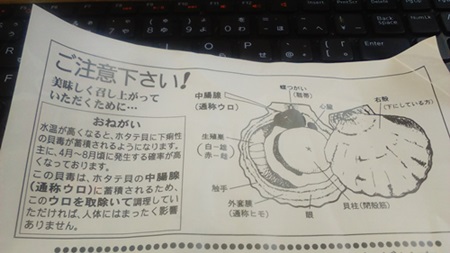 ご注意下さい!
美味しく召し上がって
いただくために…
おねがい
水温が高くなると、ホタテ貝に下痢性
の貝毒が蓄積されるようになります。
主に、4月~8月頃に発生する確率が高
くなっております。
この貝毒は、ホタテ貝の中腸腺
(通称ウロ)に蓄積されるため、
このウロを取除いて調理してい
ただければ、人体にはまったく影響
ありません。
中腸腺
(通称ウロ)
蝶つがい
(靭帯)
心臓
右殻
(下にしている方)
生殖巣
(白一雄
赤一雌)
触手
外套膜
(通称ヒモ)
眼
貝柱(閉殻筋)